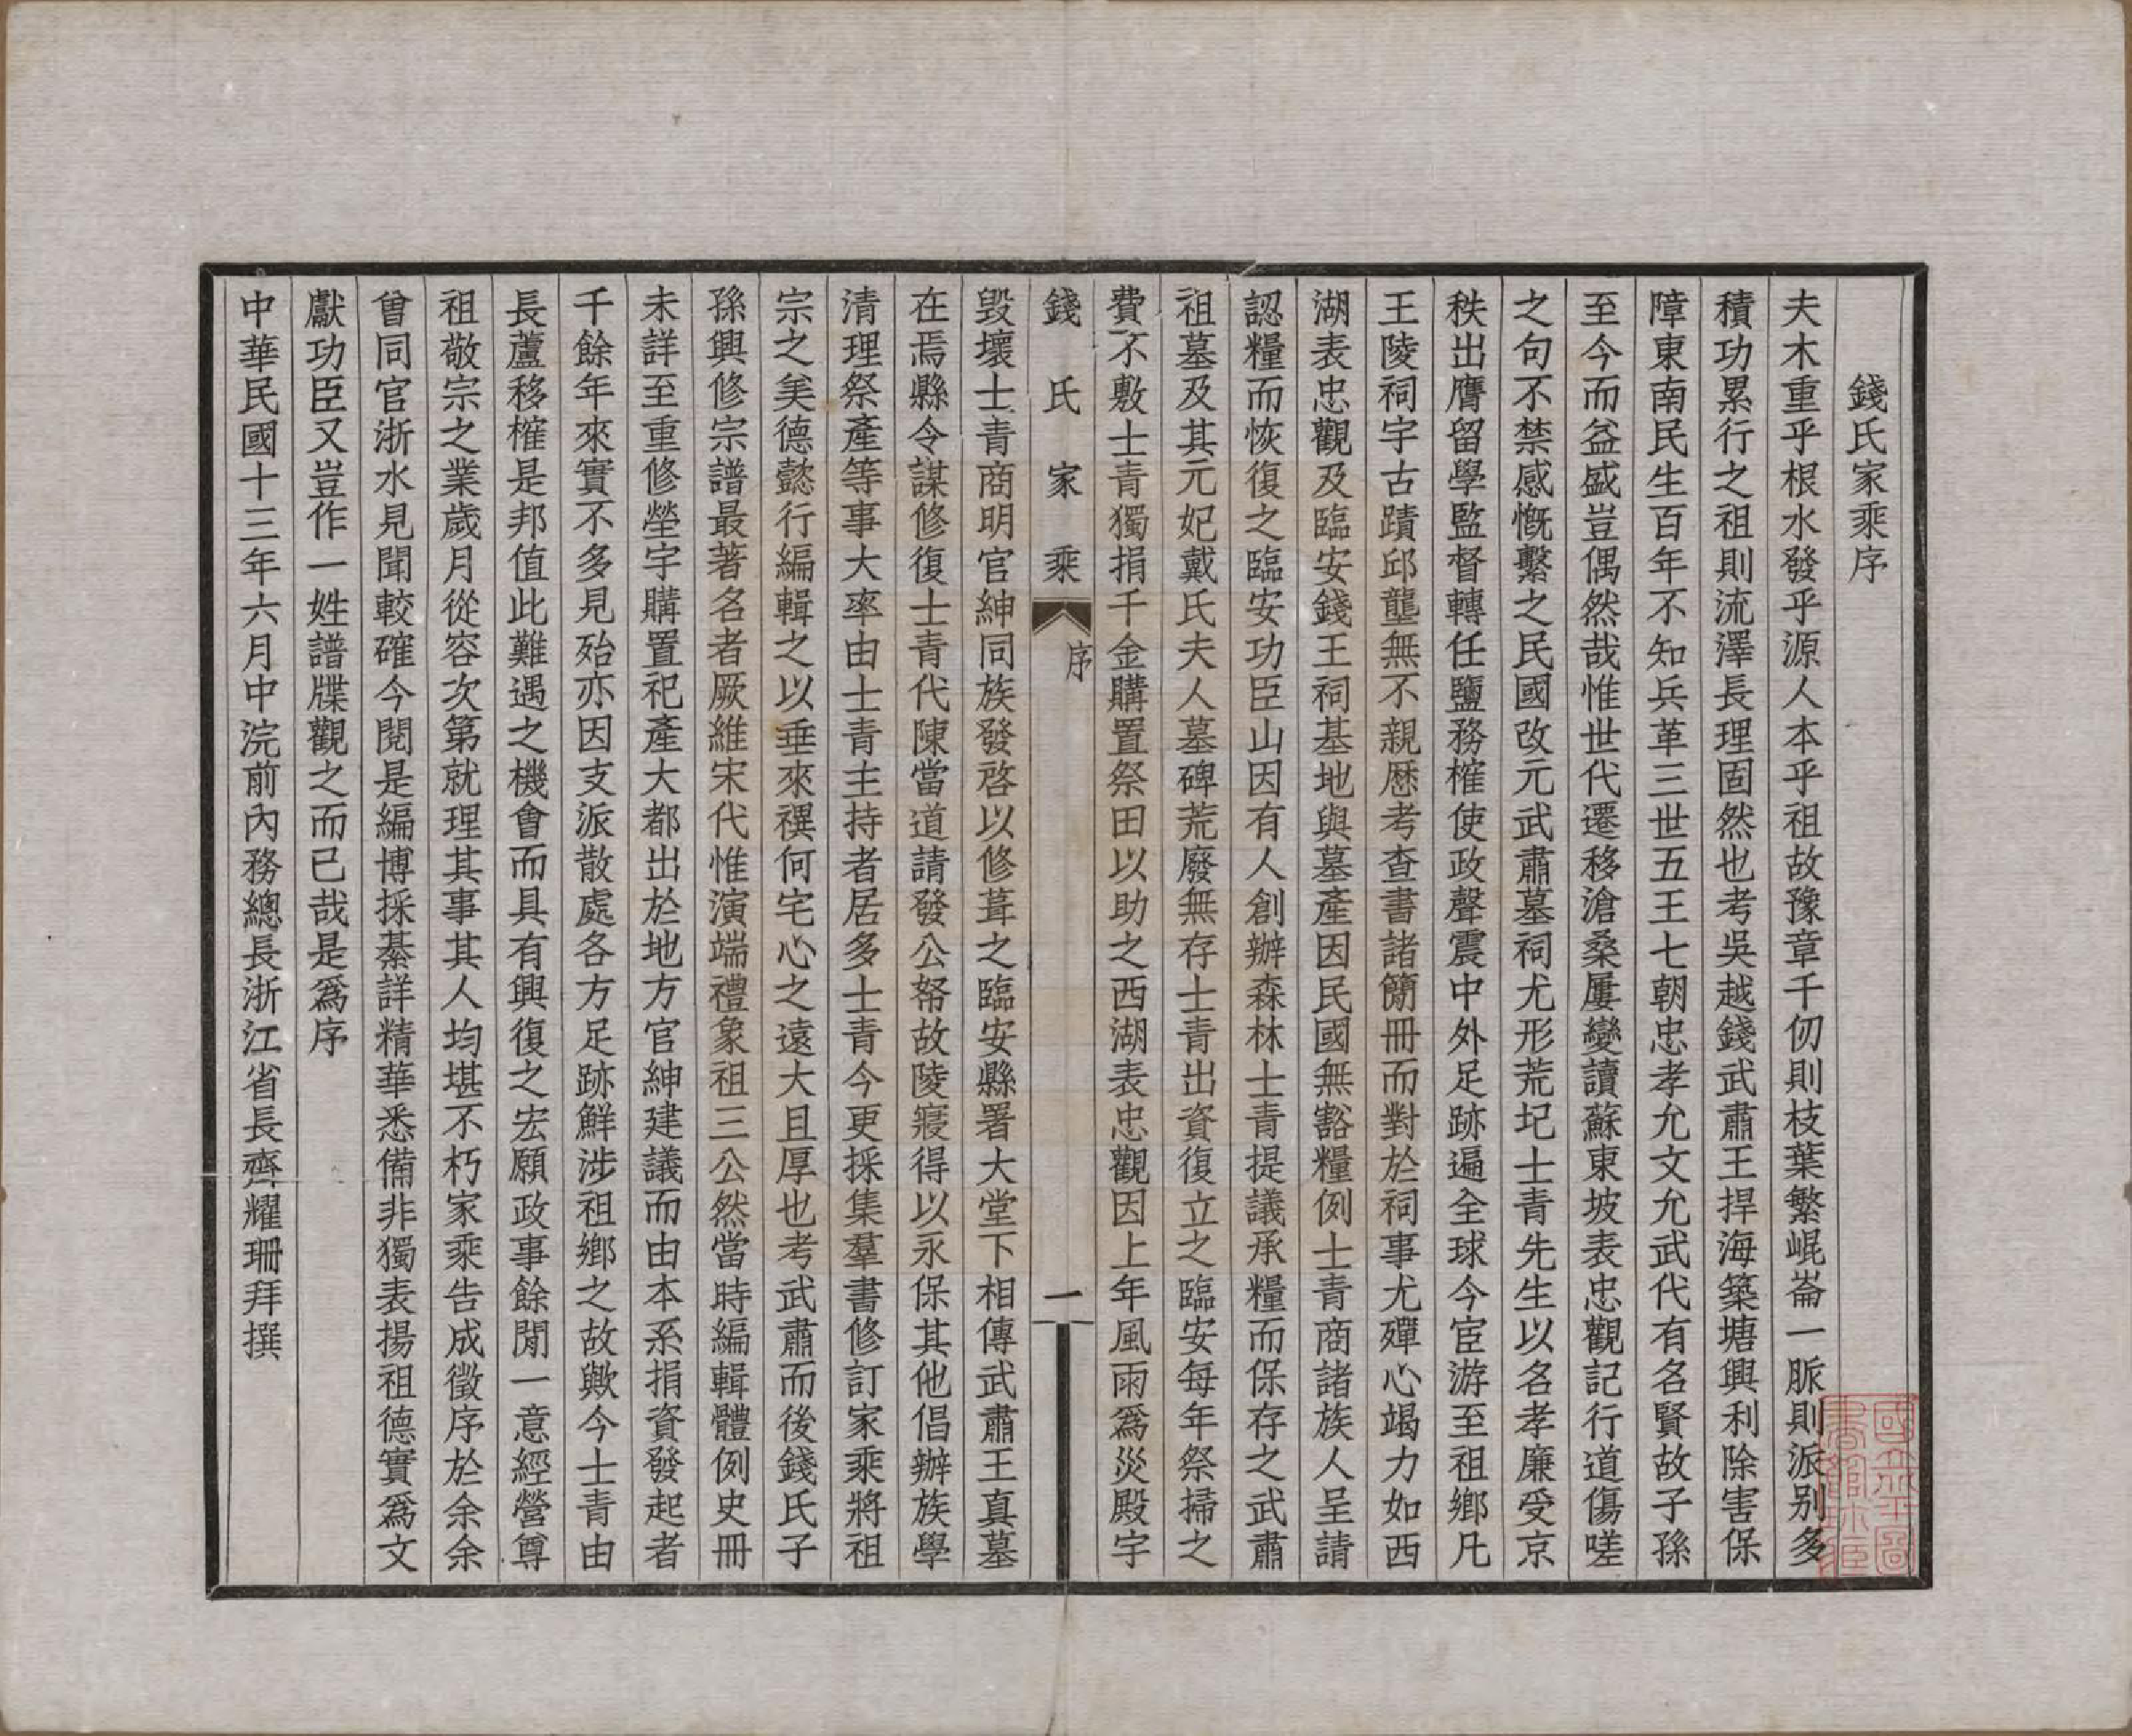 錢氏家乘序
夫木重乎根水發乎源人本乎祖故豫章千仞則枝葉繁崐崙一脈則派别多
積功累行之祖則流澤長理固然也考吳越錢武肅王捍海築塘興利除害保
障東南民生百年不知兵革三世五王七朝忠孝允文允武代有名賢故子孫
至今而益盛豈偶然哉惟世代遷移滄桑屢變讀蘇東坡表忠觀記行道傷嗟
之句不禁感慨繫之民國改元武肅墓祠尤形荒圮士青先生以名孝廉受京
秩出膺留學監督轉任鹽務榷使政聲震中外足跡遍全球今宦游至祖鄉凡
王陵祠宇古蹟邱壟無不親歷考查書諸簡冊而對於祠事尤殫心竭力如西
湖表忠觀及臨安錢王祠基地與墓產因民國無豁糧例士青商諸族人呈請
認糧而恢復之臨安功臣山因有人創辦森林士青提議承糧而保存之武肅
祖墓及其元妃戴氏夫人墓碑荒廢無存士青出資復立之臨安每年祭掃之
費不敷士青獨捐千金購置祭田以助之西湖表忠觀因上年風雨爲災殿宇
錢氏家乘
序
一
毀壞士青商明官紳同族發啓以修葺之臨安縣署大堂下相傳武肅王真墓
在焉縣令謀修復士青代陳當道請發公帑故陵寢得以永保其他倡辦族學
清理祭產等事大率由士青主持者居多士青今更採集羣書修訂家乘將祖
宗之美德懿行編輯之以垂來禩何宅心之遠大且厚也考武肅而後錢氏子
孫興修宗譜最著名者厥維宋代惟演端禮象祖三公然當時編輯體例史冊
未詳至重修塋宇購置祀產大都出於地方官紳建議而由本系捐資發起者
千餘年來實不多見殆亦因支派散處各方足跡鮮涉祖鄉之故歟今士青由
長蘆移榷是邦值此難遇之機會而具有興復之宏願政事餘閒一意經營尊
祖敬宗之業歲月從容次第就理其事其人均堪不朽家乘告成徵序於余余
曾同官浙水見聞較確今閱是編博採綦詳精華悉備非獨表揚祖德實爲文
獻功臣又豈作一姓譜牒觀之而已哉是爲序
中華民國十三年六月中浣前內務總長浙江省長齊耀珊拜撰